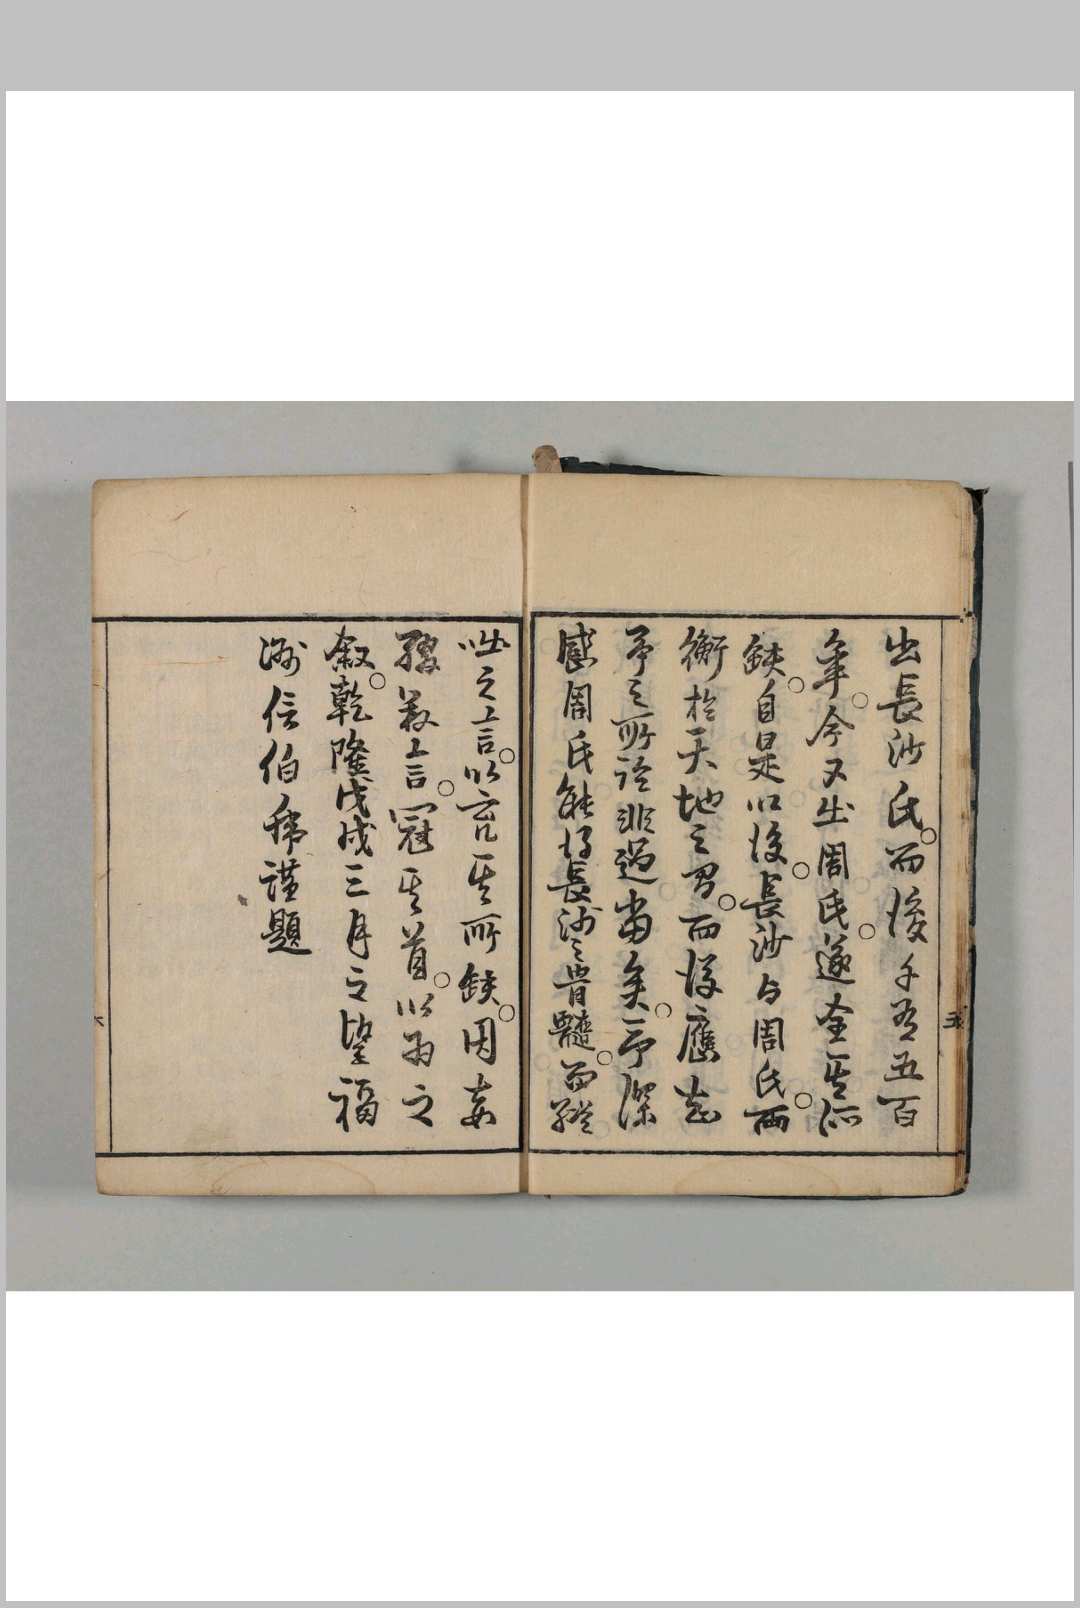 出長沙氏。而後千有五百
年。今又出周氏。遂全其所
缺。自是以後。長沙与周氏。兩
衡於天地之間。而後應知
予之所論非過當矣。予深
感周氏能得長沙之骨髓。而發
此之言。以充其所缺。因妄
綴数言。冠其首。以為之
叙。乾隆戊戌三月之望福
洲信伯 謹題
五
六